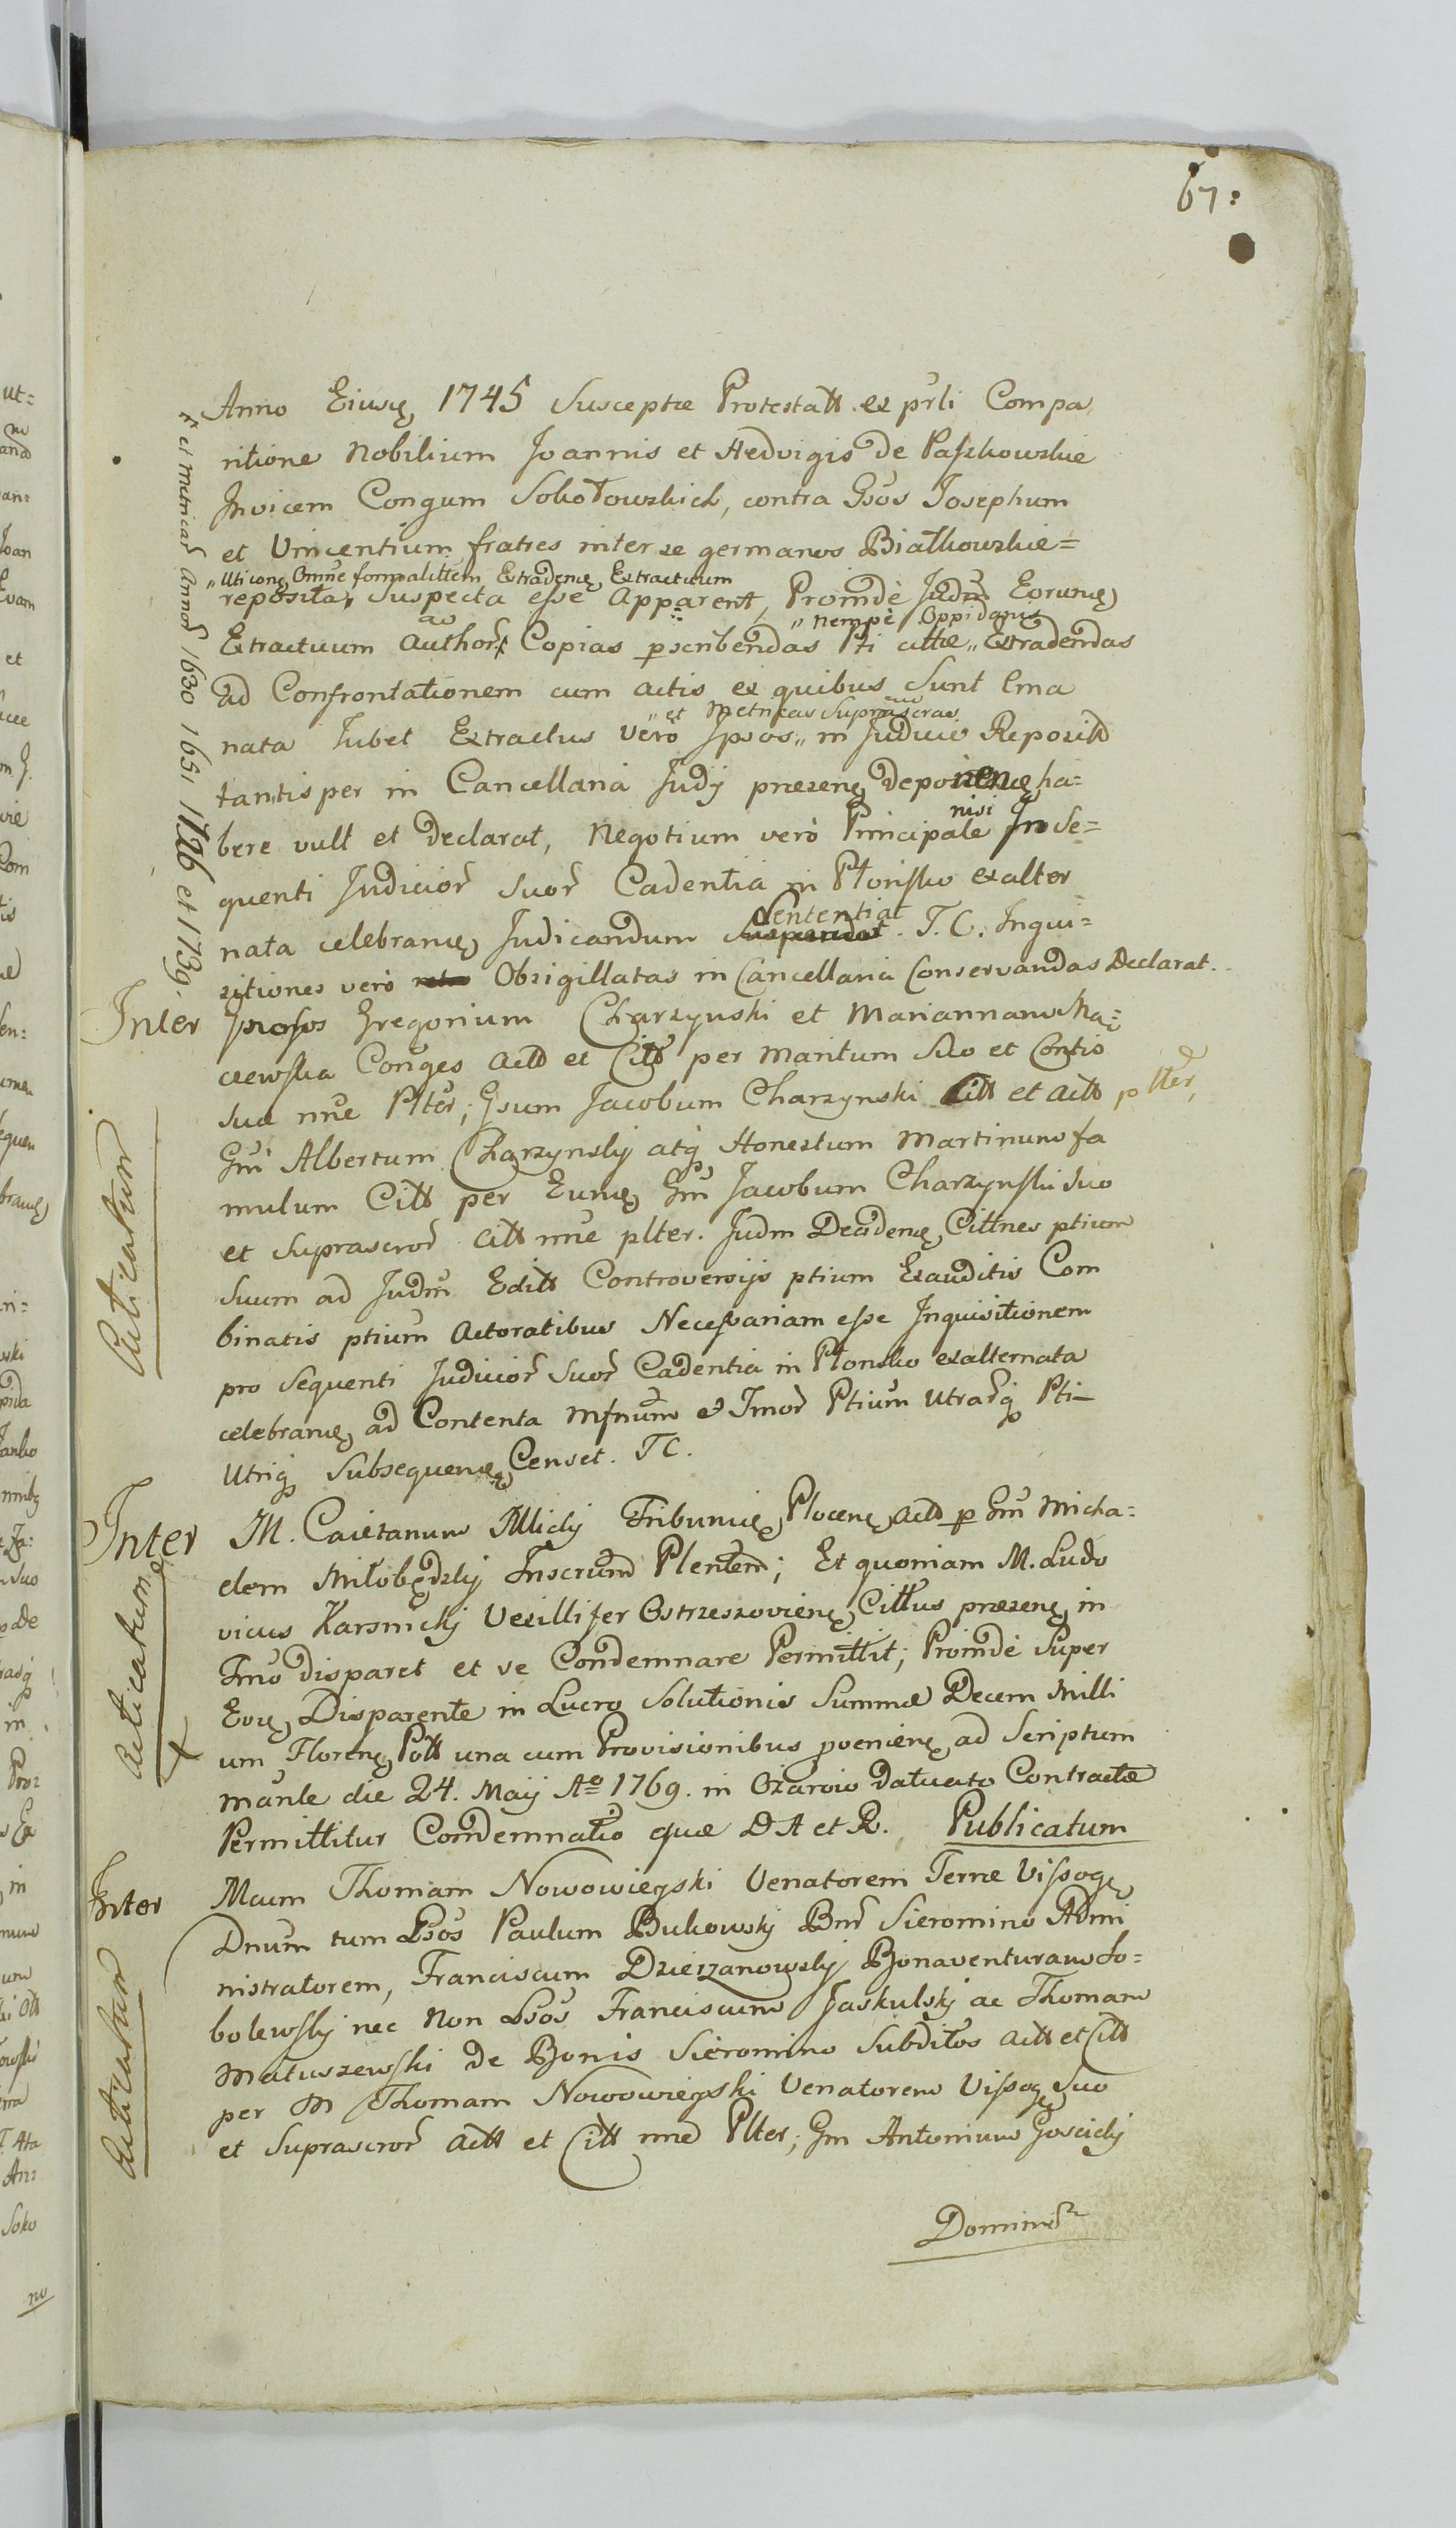 67:
Anno Eiusq 1745 Susceptæ Protestatt ex prli Compa
ritione Nobilium Joannis et Hedvigis de Paszkowskie
Invicem Congum Sokołowskich, contra Gsos Josephum
et Vincentium fratres inter se germanos Białkowskie=
"Uti conq Omne formalittem Extradenq Extractuum
reposita, Suspecta esse Apparent, Proinde Judm Eorunq
"nempe Oppidanis
Extractuum Author Copias pscribendas Pti cittæ" Extradendas
ad Confrontationem cum actis ex quibus Sunt Ema
"et Metricas Suprascras
nata Jubet Extractus Vero Ipsos" in Judicio Reposit
tantisper in Cancellaria Judij præsenq Deponenq ha=
nisi
bere vult et Declarat, Negotium vero Principale In Se=
quenti Judicior Suor Cadentia in Płońsko exalter
Sententiat
nata celebranq Judicandum Suspendat. T. C. Inqui=
sitiones vero Obsigillatas in Cancellaria Conservandas Declarat.
x et metricar Annor 1630 1651 1726 et 1739.
Inter Gregorium Charzynski et Mariannam Ka=
Conges Actt et Citt per Maritum Suo et Contis
Suæ nne Plter; Gsum Jacobum Charzynski Citt et Actt p ltter,
Gm Albertum Charzynskij atq Honestum Martinum fa
mulum Citt per Eunq Gm Jacobum Charzynski Suo
et Suprascror Citt nne plter. Judm Decidenq Cittnes ptium
Suum ad Judm Editt Controversijs ptium Exauditis Com
binatis ptium Actoratibus Necessariam esse Inquisitionem
pro Sequenti Judicior Suor Cadentia in Płonsko exalternata
celebranq ad Contenta Mfnum & Tmor Ptium Utrarq Pti
Utriq Subsequenq Censet. TC.
Acticatum
Inter M. Caietanum Tribunie Plocenq Actt p Gm Micha=
elem Miłobędzkij Inscrum Plentem; Et quoniam M. Ludo
vicus Karsnickj Vexillifer Ostrzeszovienq Cittus præsenq in
Tmo disparet et se Condemnare Permittit; Proinde Super
Eoq Disparente in Lucro Solutionis Summæ Decem Milli
um Florenq Poll una cum Provisionibus pvenienq ad Scriptum
manle die 24. Maij Ao 1769. in Ożarow datuato Contractæ
Permittitur Condemnatio quæ DA et R. Publicatum
Acticatum
Inter Mcum Thomam Nowowieyski Venatorem Terræ Vissogq
Dnum tum Lsos Paulum Bukowskj Bnr Sieromino Admi
nistratorem, Franciscum Dzierzanowskj Bonaventuram So=
bolewskj nec Non Lsos Franciscum Jaskulskj ac Thomam
Matuszewski de Bonis Sieromino Subditos Actt et Citt
per M Thomam Nowowieyski Venatorem Vissogq Suo
et Suprascror Actt et Citt nne Plter; Gm Antonium Goscickj
Acticatum
Dominor